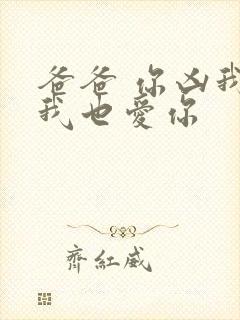 爸爸 你凶我
我也愛你
齊紅威